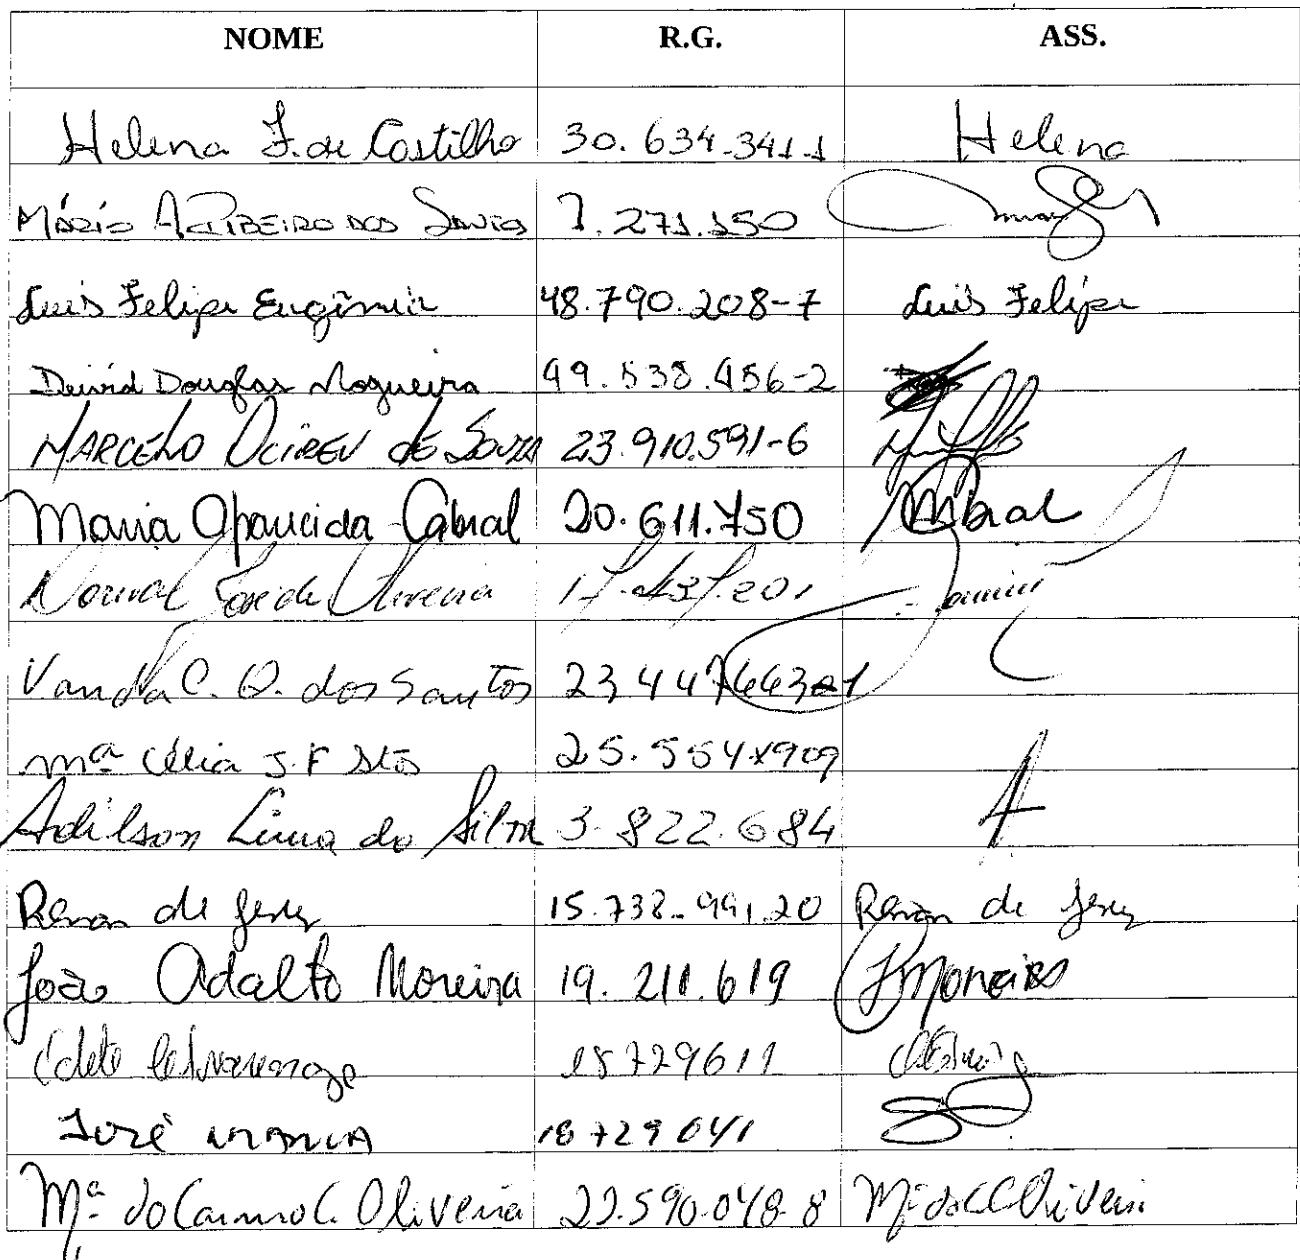 NOME R.G. ASS.
Helena F. de Castilho 30.634.341-1 Helena
Mário A. Ribeiro dos Santos 7.271.150
Luis Felipe Eugênio 48.790.208-7 Luis Felipe
Deivid Douglas Nogueira 49.538.456-2
MARCELO DE SOUZA 23.910.591-6
Maria Aparecida Cabral 20.611.750
Dorival José de Oliveira
Vanda C. O. dos Santos
Mª Célia J. F Stos
Adilson Lima da Silva 3.822.684
Renan de Jesus Renan de Jesus
João Adalto Moreira 19.211.619 JMoreira
18729611
José MARIA 18729041
Mª do Carmo C. Oliveira 22.590.048-8 Mª do C C Oliveira